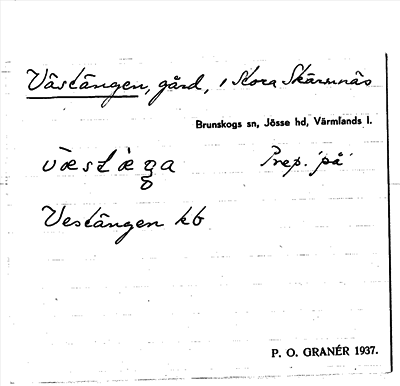 Västängen, gård, i Stora Skärmnäs
Brunskogs sn, Jösse hd, Värmlands l.
væstæŋa Prep. 'på'
Vestängen kb
P. O. GRANÉR 1937.